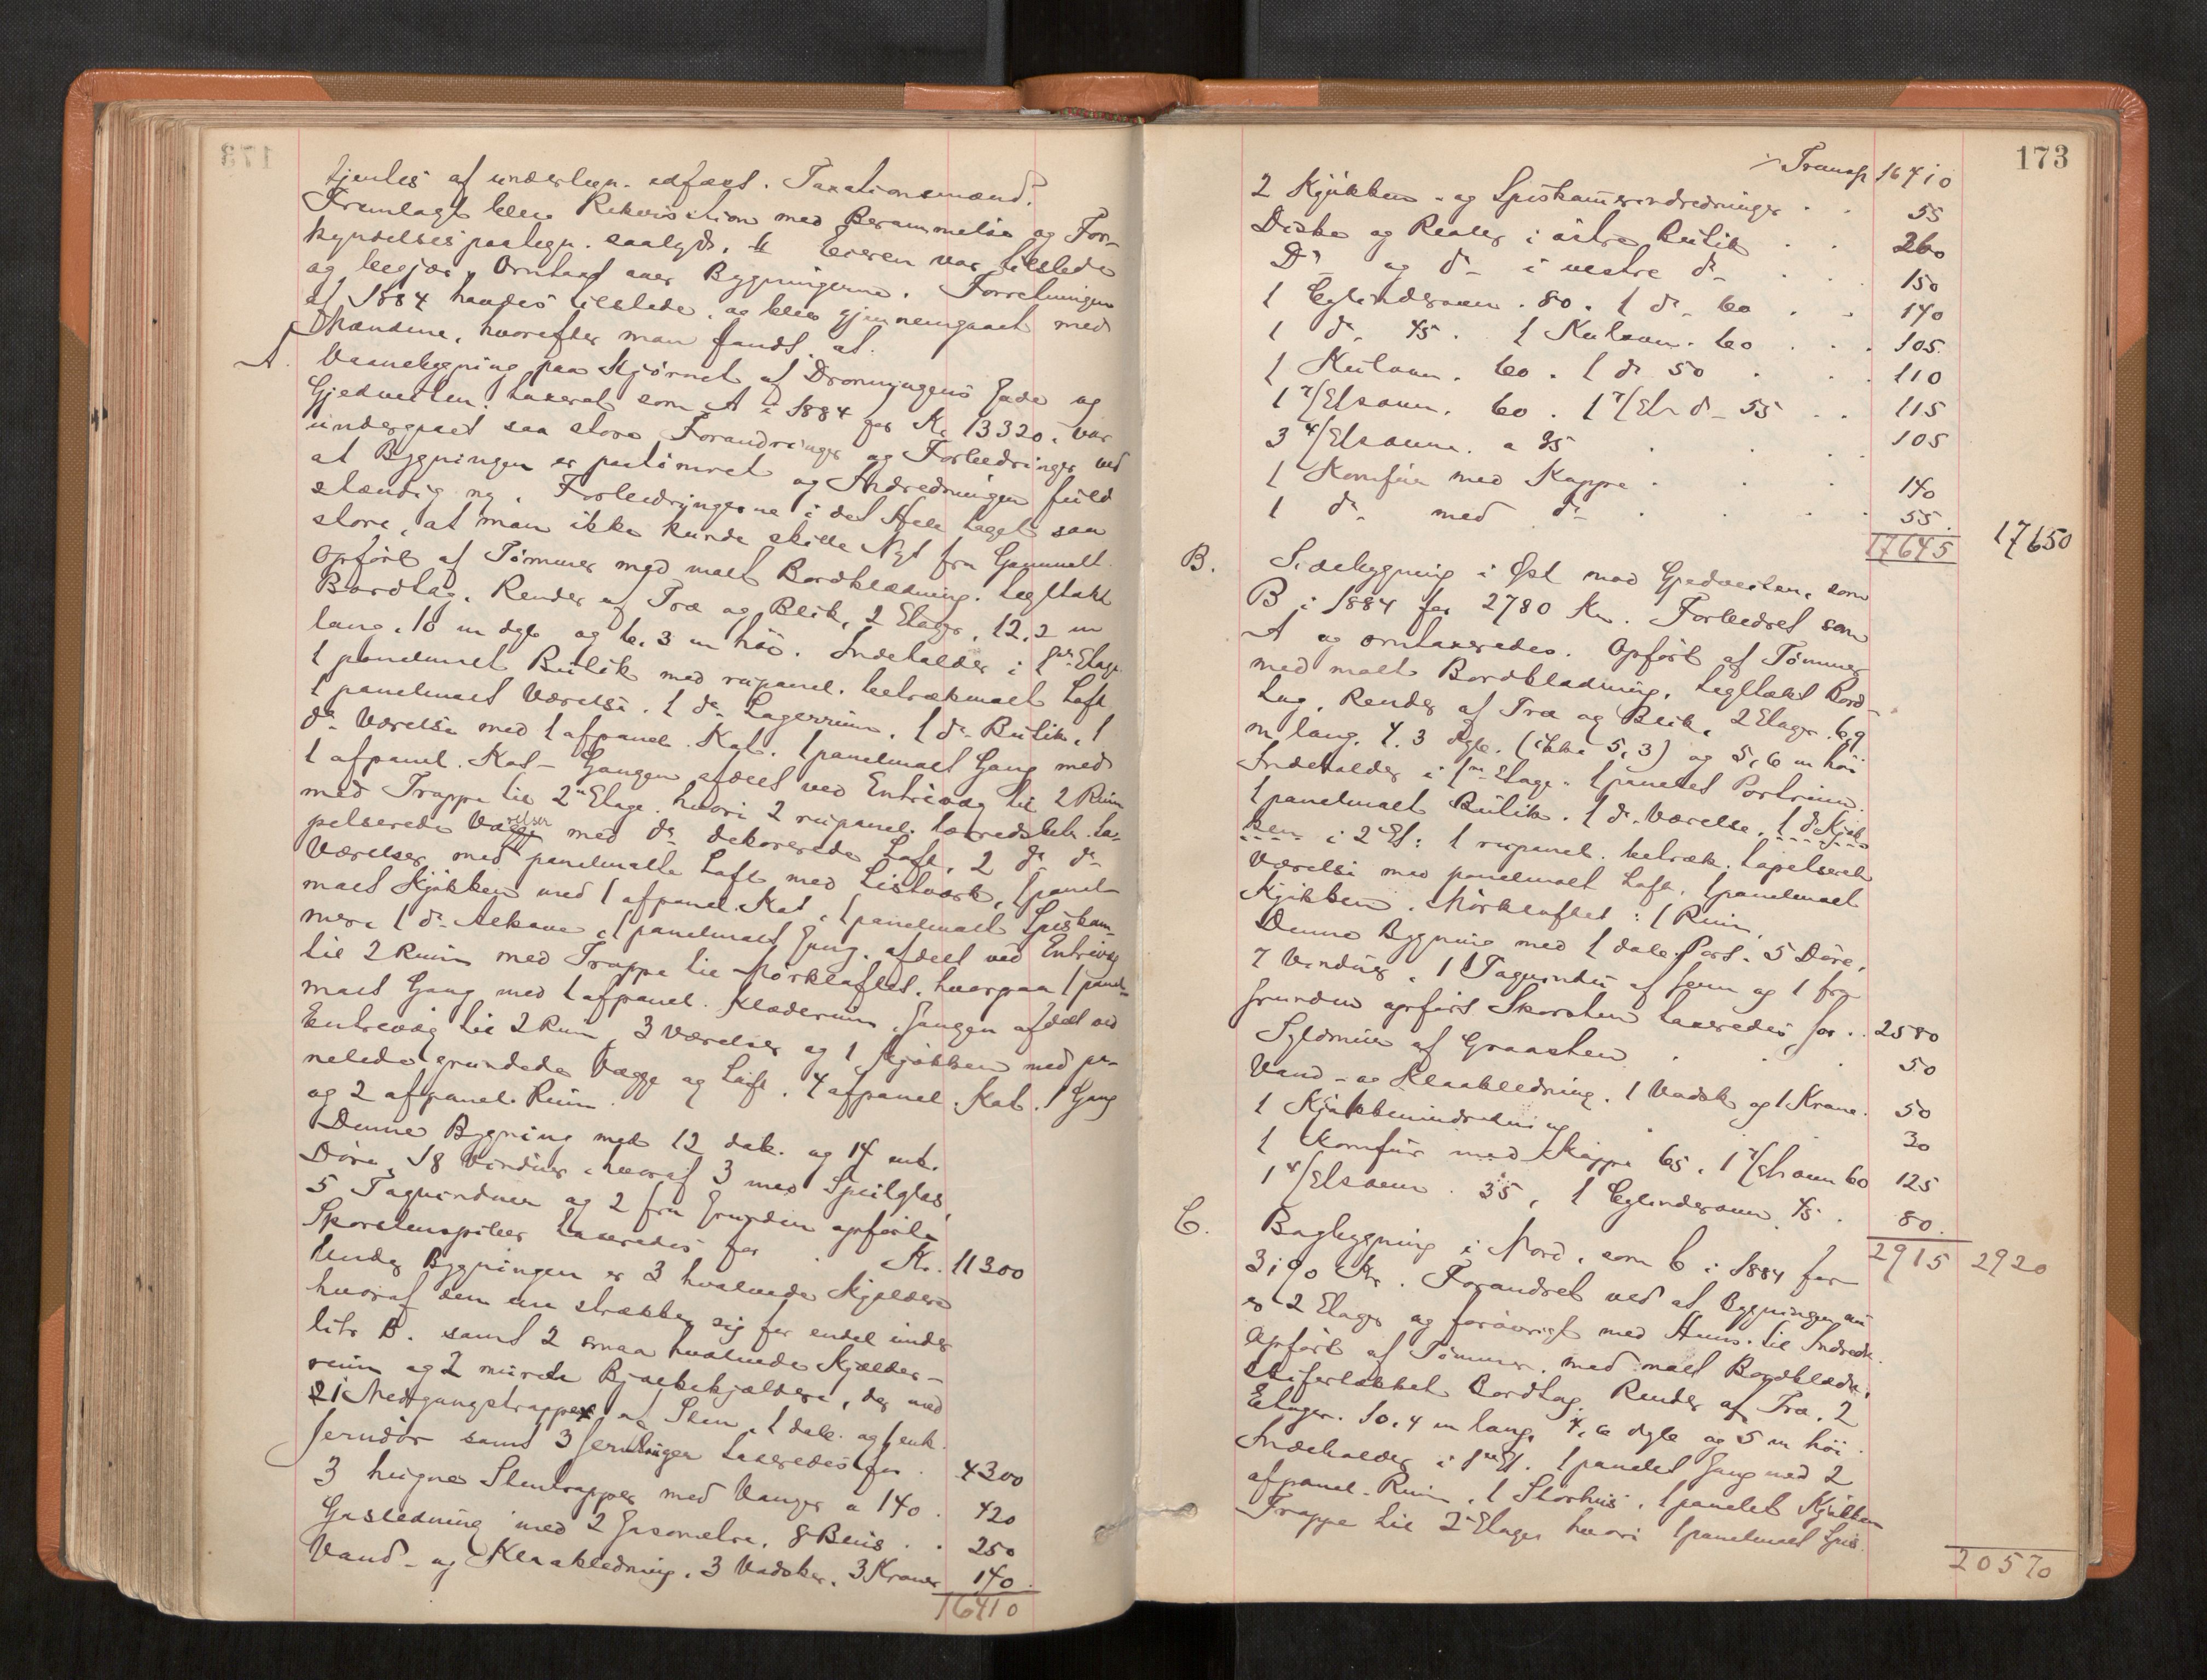 tjentes af underlegn. edfæst. Taxationsmænd.
Fremlagt blev Rekvisition med Berammelse og For-
kyndelsespaategn. saalyd. Eieren var tilstede
og begjær. Omtaxt over Bygningerne. Forretningen
af 1884 havdes tilstede, og blev gjennemgaaet med
Mændene, hvorefter man fandt, at.
A. Vaanebygning paa Hjørnet af Dronningens Gade og
Gjedveiten. taxeret som A i 1884 for Kr 13320. var
undergaaet saa store Forandringer og Forbedringer ved
at Bygningen er paatimret og Indredningen fuld-
stændig ny. Forbedringerne i det Hele taget saa
store, at man ikke kunde skille Nyt fra Gammelt.
Opført af Tømmer med malt Bordklædning. tegltækt
Bordtag. Render af Træ og Blik, 2 Etager, 12,2 m
lang, 10 m dyb og 6,3 m høi. Indeholder i 1ste Etage
1 panelmalt Butik med rupanel. betrækmalt Loft
1 panelmalt Værelse. 1 do Lagerrum, 1 do Butik, 1
do Værelse med 1 afpanel. Kat. 1 panelmalt Gang med
1 afpanel. Kat- Gangen afdelt ved Entrivæg til 2 Rum
med Trappe til 2n Etage. hvori 2 rupanel. lærredsbetr. ta-
petserede Værelser med do dekorerede Loft, 2 do do
Værelser med panelmalte Loft med Listværk, 1 panel-
malt Kjøkken med 1 afpanel. Kat, 1 panelmalt Spiskam-
mer. 1 do Alkove, 1 panelmalt Gang. afdelt ved Entrivæg
til 2 Rum med Trappe til Mørkloftet, hvorpaa 1 panel-
malt Gang med 1 afpanel. Klæderum, Gangen afdelt ved
Entrevæg til 2 Rum, 3 Værelser og 1 Kjøkken med pa-
nelede grundede Vægge og Loft. 4 afpanel. Kat. 1 Gang
og 2 afpanel. Rum.
Denne Bygning med 12 dob. og 14 enk.
Døre, 18 Vinduer, hvoraf 3 med Speilglas,
5 Tagvinduer og 2 fra Grunden opførte
Skorstenspiber taxeredes for Kr. 11300
Under Bygningen er 3 hvælvede Kjældere
hvoraf den ene strækker sig for endel under
litr B. samt 2 smaa hvælvede Kjælder-
rum og 2 murede Bjælkekjældere, der med
1 Nedgangstrappe af Sten, 1 dob. og 1 enk.
Jerndør samt 3 Jernluger taxeredes for 4300
3 hugne Stentrapper med Vanger a 140. 420
Gasledning med 2 Gasometre, 8 Blus. 250
Vand- og Kloakledning. 3 Vadsker. 3 Kraner 140.
16410
173
Transp 16410
2 Kjøkken- og Spiskamerindredninger 55
Diske og Reoler i østre Butik 260
Do og do i vestre do 150
1 Cylinderovn. 80. 1 do 60 140
1 do 45. 1 Kulovn. 60 105.
1 Kulovn. 60. 1 do 50 110
1 7/Etsovn. 60. 1 7/Etr do 55 115
3 4/Etsovne. a 35 105
1 Komfur med Kappe 140
1 do med do 55.
17645 17650
B. Sidebygning i Øst mod Gjedveiten, som
B i 1884 for 2780 Kr. Forbedret som
A og omtaxeredes. Opført af Tømmer
med malt Bordklædning, tegltækt Bord-
tag, Render af Træ og Blik, 2 Etager. 6,9
m lang. 4,3 dyb. (ikke 5,3) og 5,6 m høi
Indeholder i 1ste Etage. 1 panelet Portrum.
1 panelmalt Butik. 1 do Værelse. 1 do Kjøk-
ken i 2 Et: 1 rupanel. betræk. tapetseret
Værelse med panelmalt Loft. 1 panelmalt
Kjøkken. Mørkloftet: 1 Rum.
Denne Bygning med 1 dob. Port. 5 Døre,
7 Vinduer, 1 Tagvindu af Jern og 1 fra
Grunden opført Skorsten taxeredes for. 2580
Syldmur af Graasten 50
Vand- og Kloakledning, 1 Vadsk og 1 Krane. 50
1 Kjøkkenindredning 30
1 Komfur med Kappe 65. 1 7/Etsovn 60 125
1 4/Etsovn. 35, 1 Cylinderovn 45. 80.
2915 2920
C. Bagbygning i Nord, som C i 1884 for
3190 Kr. Forandret ved at Bygningen nu
er 2 Etager og forøvrigt med Hens. til Indredn.
Opført af Tømmer, med malt Bordklædn.
skifertækket Bordtag. Render af Træ. 2
Etager. 10,4 m lang, 4,6 dyb og 5 m høi.
Indeholder i 1ste Et. 1 panelet Gang med 2
afpanel. Rum. 1 Storhus. 1 panelet Kjøkken
Trappe til 2 Etager hvori 1 panelmalt Spis.
20570